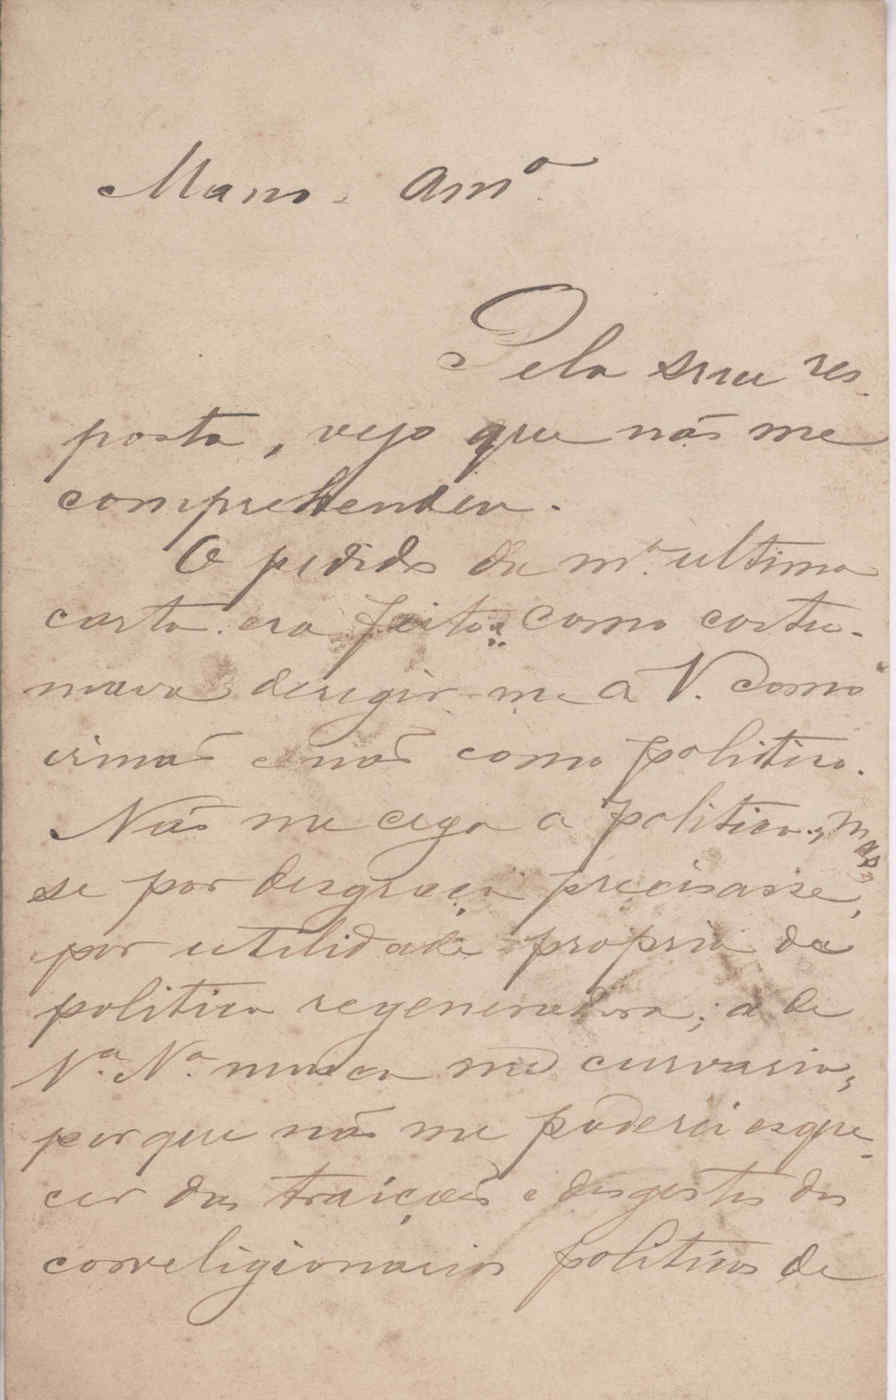 Mano. Amº
Pela sua res
posta, vejo que não me
comprehendeu.
O pedido da mª ultima
carta era feito como costu-
mava derigir-me a V. como
irmão e não como politico.
Não me cega a politica, mas
se por desgraça precisasse,
por utilidade propria da
politica regeneradora, a de
Vª Nª nunca me curvaria,
porque não me poderei esque-
cer das traições e desgostos dos
correligionarios politicos de